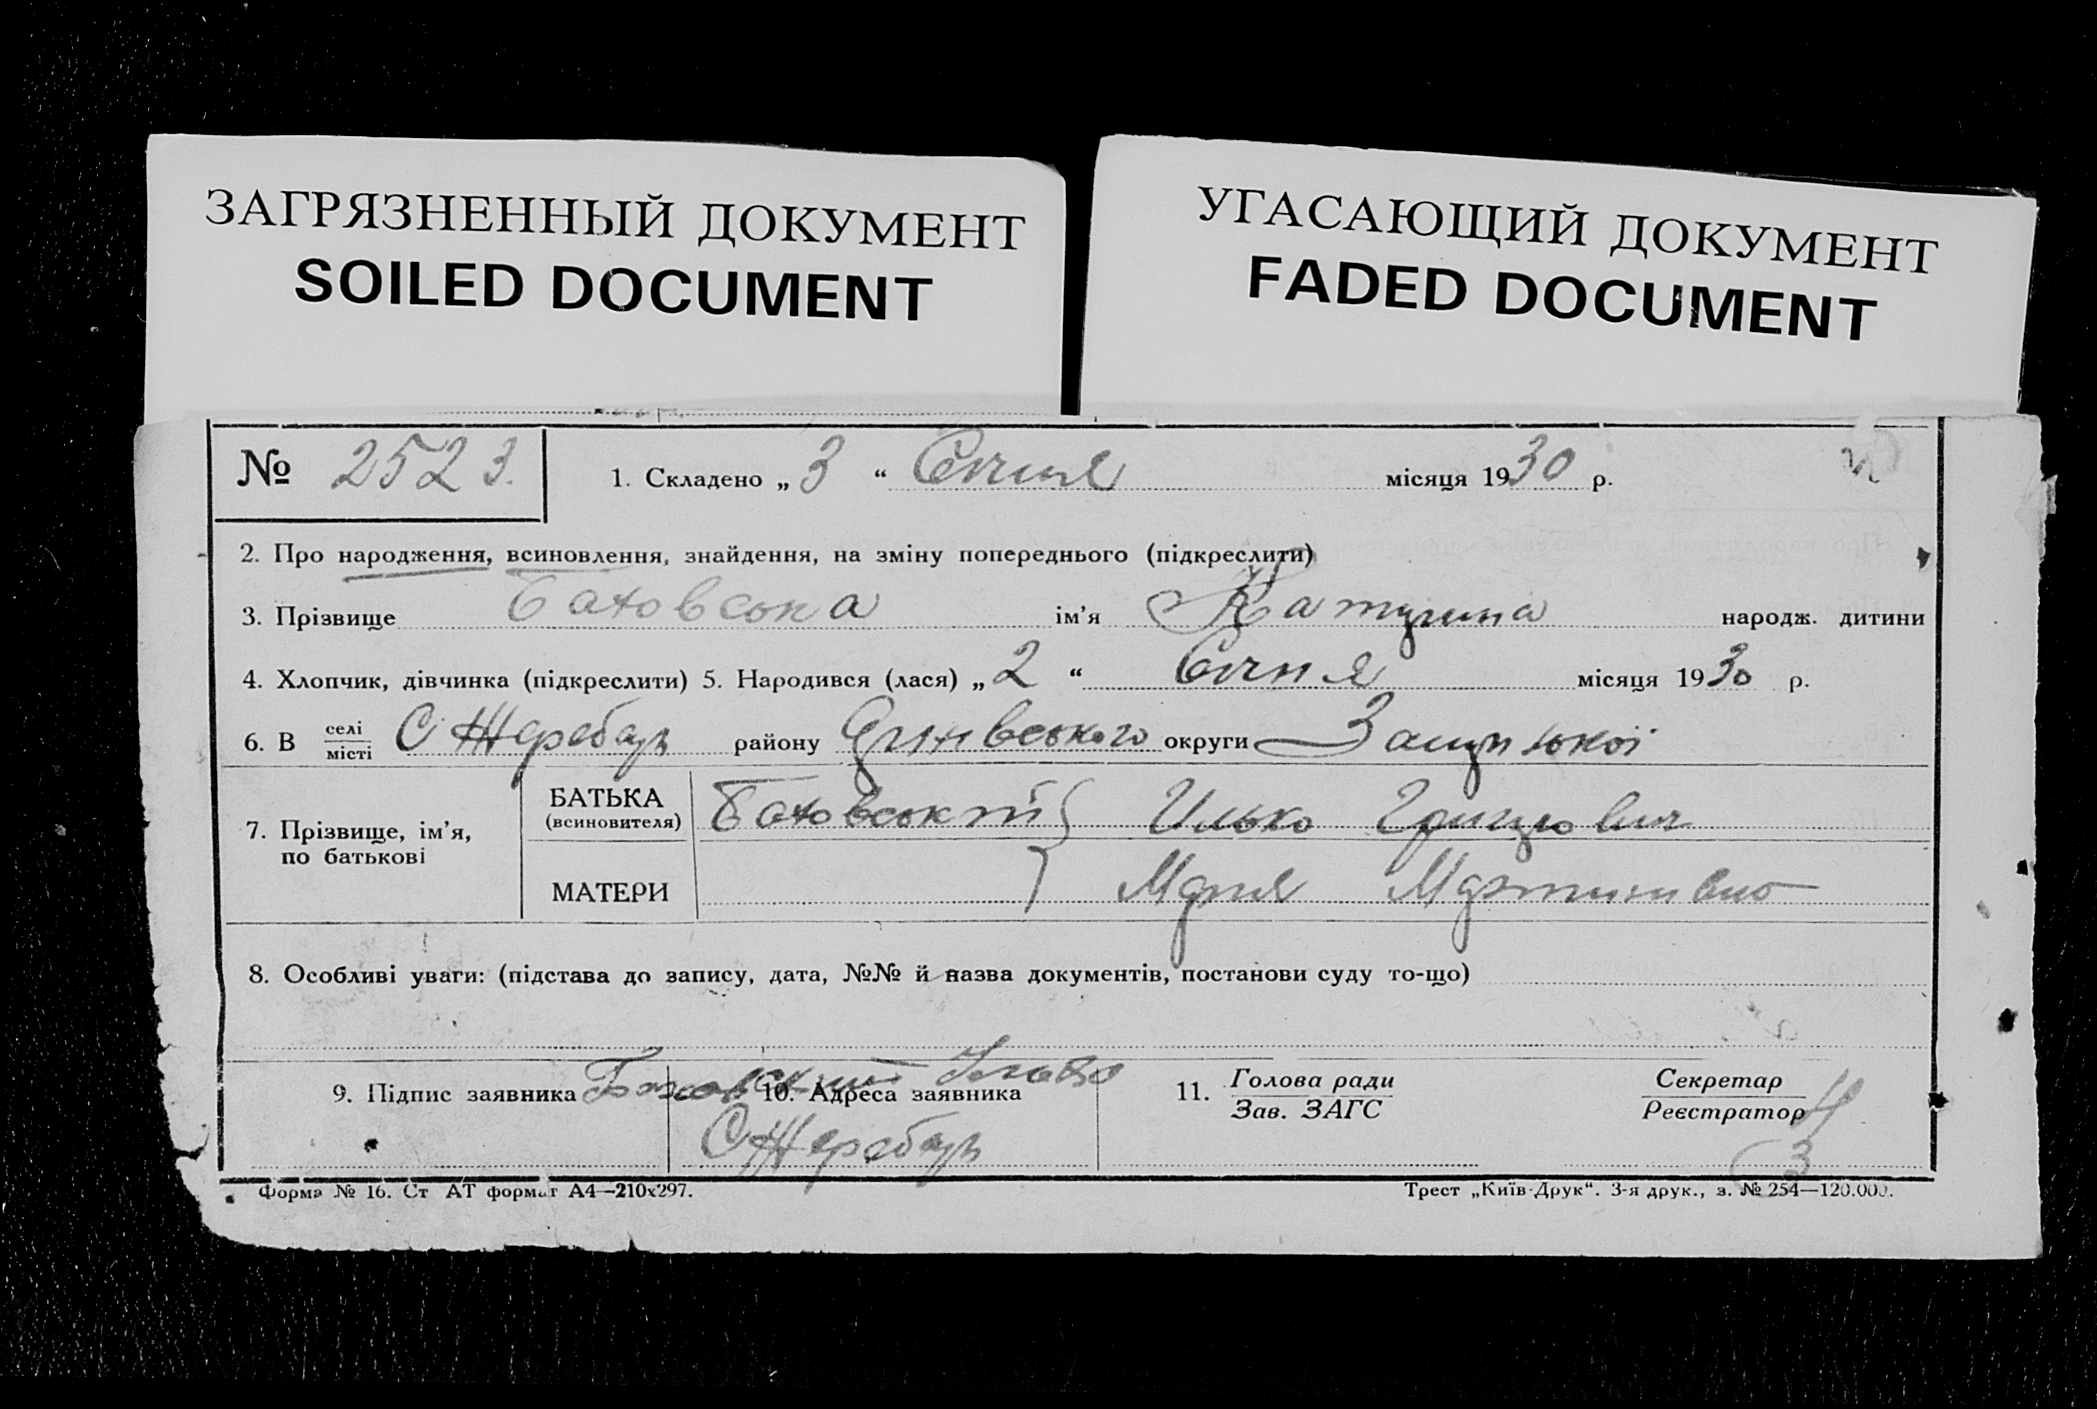 ЗАГРЯЗНЕННЫЙ ДОКУМЕНТ
SOILED DOCUMENT
УГАСАЮЩИЙ ДОКУМЕНТ
FADED DOCUMENT
№ 2523.
1. Складено „ 3 “ Січня місяця 1930 р.
2. Про народження, всиновлення, знайдення, на зміну попереднього (підкреслити)
3. Прізвище Батовська ім’я Катерина народж. дитини
4. Хлопчик, дівчинка (підкреслити) 5. Народився (лася) „ 2 “ Січня місяця 1930 р.
6. В селі місті С Жеребець району округи
7. Прізвище, ім’я, по батькові
БАТЬКА (всиновителя) Илько
МАТЕРИ Мария Мартинівна
8. Особливі уваги: (підстава до запису, дата, №№ й назва документів, постанови суду то-що)
9. Підпис заявника
10. Адреса заявника
С Жеребець
11. Голова ради Зав. ЗАГС
Секретар Реєстратор
Форма № 16. Ст АТ формат А4—210х297.
Трест „Київ-Друк“. 3-я друк., з. № 254—120.000.